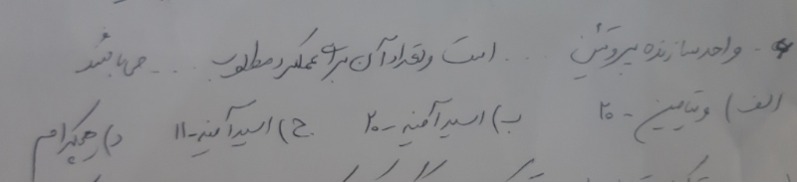 واحد سازنده پروتئین ... است و تعداد آن برای عملکرد مطلوب ... می باشد
الف) ویتامین - ۲۰ ب) اسید آمینه - ۲۰ ج) اسید آمینه - ۱۱ د) هیچکدام